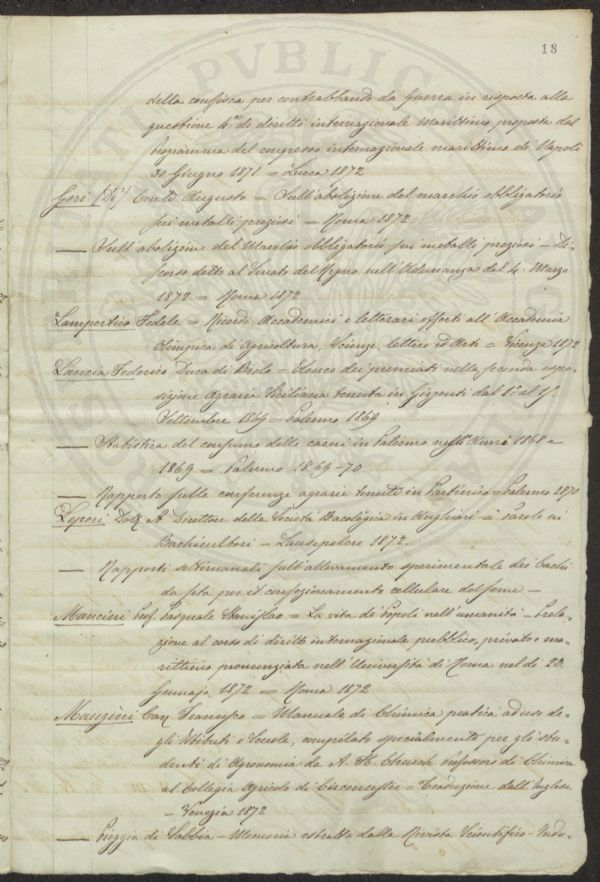 18
della confisca per contrabbando da Guerra in risposta alla
questione 4.a di diritto internazionale marittimo proposta dal
Programma del congresso internazionale marittimo di Napoli
30 Giugno 1871 = Lucca 1872
Gori (De') Conte Augusto = Sull'abolizione del marchio obbligatorio
sui metalli preziosi = Roma 1872
— Sull'abolizione del Marchio obbligatorio sui metalli preziosi = Di-
scorso detto al Senato del Regno nell'Adunanza del 4. Marzo
1872 = Roma 1872
Lampertico Fedele = Ricordi Accademici e letterari offerti all'Accademia
Olimpica di Agricoltura, Scienze, lettere ed Arti = Vicenza 1872
Lancia Federico Duca di Brolo = Elenco dei premiati nella seconda espo-
sizione Agraria Siciliana tenuta in Girgenti dal 1.° al
Settembre 1869 = Palermo 1869
— Statistica del consumo delle carni in Palermo negli Anni 1868 e
1869 = Palermo 1869-70
— Rapporto sulle conferenze agrarie tenute in Partinico = Palermo 1870
Lepori Dott. A. Direttore della Società Bacologica in = Parole ai
Bachicultori = 1872.
— Rapporti settimanali sull'allevamento sperimentale dei bachi
da seta per il confezionamento cellulare del seme =
Mancini Prof. Pasquale Stanislao = La vita de' Popoli nell'umanità = Prole-
zione al corso di diritto internazionale pubblico, privato e ma-
rittimo pronunziata nell'Università di Roma nel dì 23.
Gennajo 1872 = Roma 1872
Mangini Cav. Francesco = Manuale di Chimica pratica ad uso de-
gli Istituti e Scuole, compilato specialmente per gli stu-
denti di Agronomia da A. H. Church Professore di Chimica
al Collegio Agricolo di Cirencester = Traduzione dall'Inglese
= Venezia 1872
— Pioggia di Sabbia = Memoria estratta dalla Rivista Scientifico-Indu-